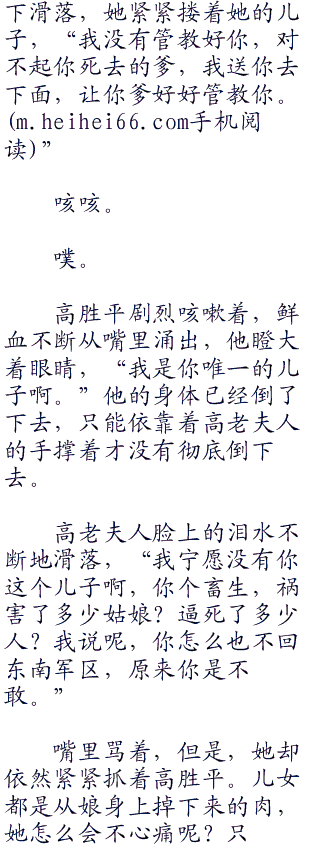 下滑落，她紧紧搂着她的儿
子，“我没有管教好你，对
不起你死去的爹，我送你去
下面，让你爹好好管教你。
(m.heihei66.com手机阅
读)”
咳咳。
噗。
高胜平剧烈咳嗽着，鲜
血不断从嘴里涌出，他瞪大
着眼睛，“我是你唯一的儿
子啊。”他的身体已经倒了
下去，只能依靠着高老夫人
的手撑着才没有彻底倒下
去。
高老夫人脸上的泪水不
断地滑落，“我宁愿没有你
这个儿子啊，你个畜生，祸
害了多少姑娘？逼死了多少
人？我说呢，你怎么也不回
东南军区，原来你是不
敢。”
嘴里骂着，但是，她却
依然紧紧抓着高胜平。儿女
都是从娘身上掉下来的肉，
她怎么会不心痛呢？只